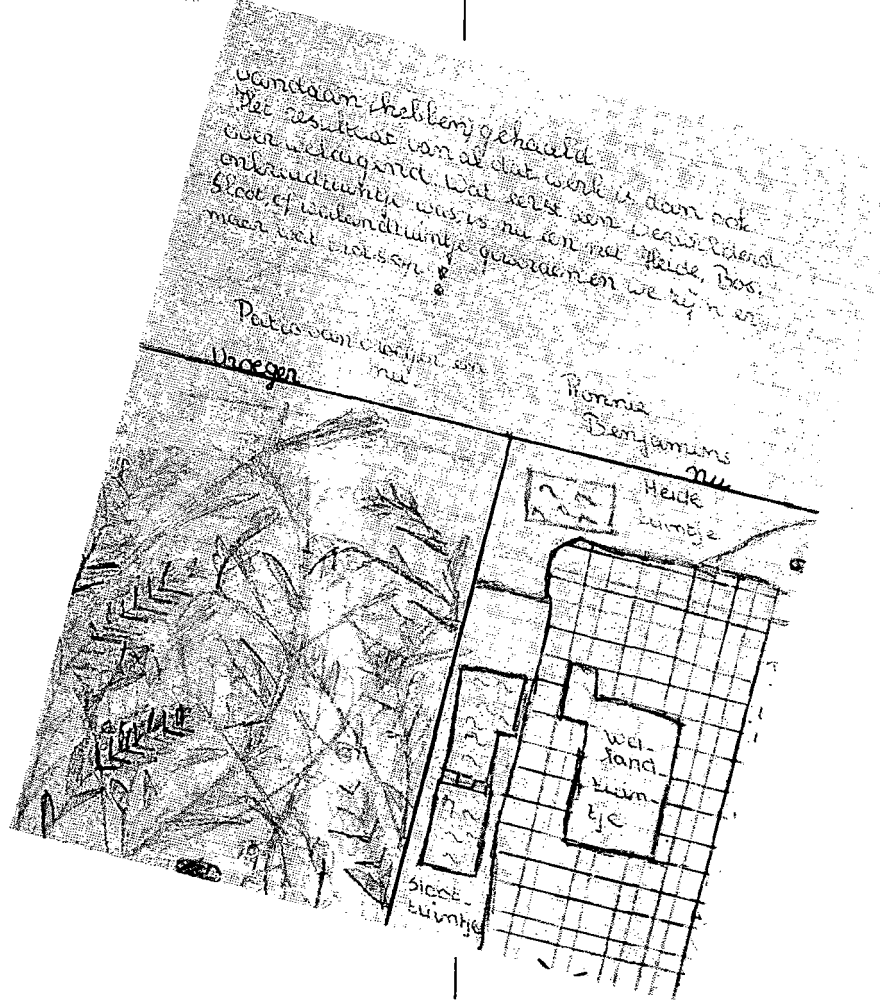 vandaan hebben gehaald.
Het resultaat van al dat werk is dan ook
overweldigend. Wat eerst een verwilderd
onkruidtuintje was is nu een net Heide, Bos,
Sloot, of weilandtuintje geworden en we zijn er
maar wat trots op!
Patio van vroeger en
nu.
Vroeger
Ronnie
Benjamins
nu
Heide
tuintje
wei-
land
tuin-
tje
sloot-
tuintje